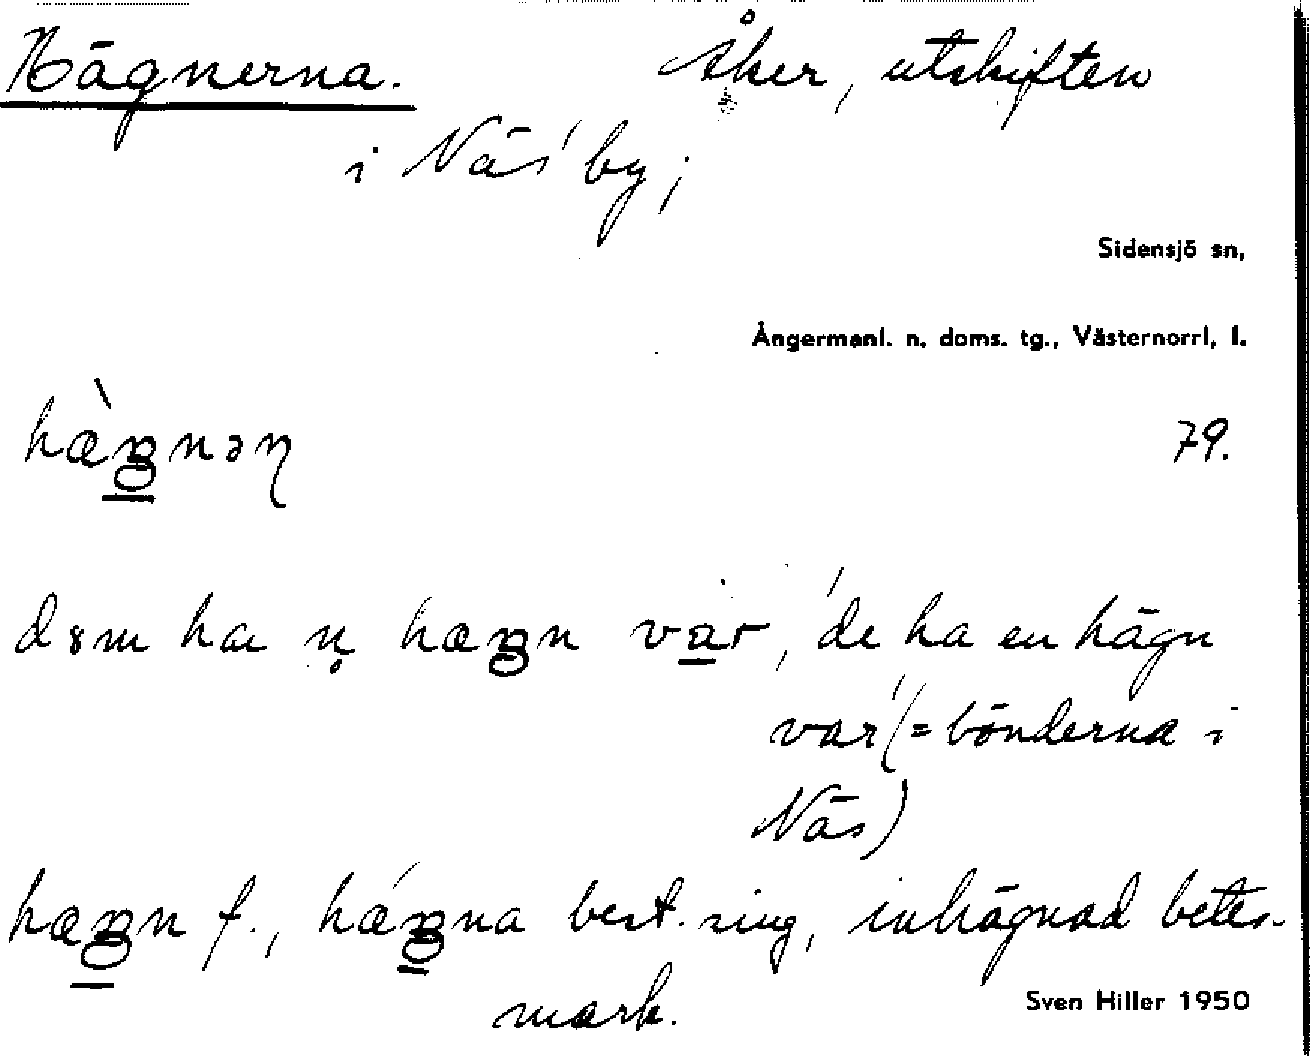 Hägnerna. Åker, utskiften
i Näs' by;
Sidensjö sn,
Ångermanl. n. doms. tg., Västernorrl. l.
hæ̀gnəɳ
79.
dɞm ha n̥ hægn var, 'de ha en hägn
var' (= bönderna i
Näs)
hægn f., hǽgna best. sing, inhägnad betes-
mark.
Sven Hiller 1950